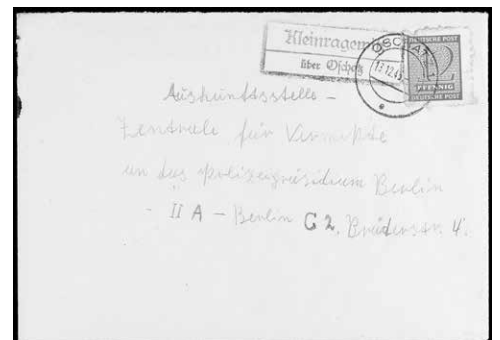 Kleinragen
über Oschatz
OSCHAT
13.12.45
DEUTSCHE POST
12
PFENNIG
DEUTSCHE POST
Auskunftsstelle –
Zentrale für Vermißte
an das Polizeipräsidium Berlin
- II A – Berlin C 2, Brüderstr. 4.